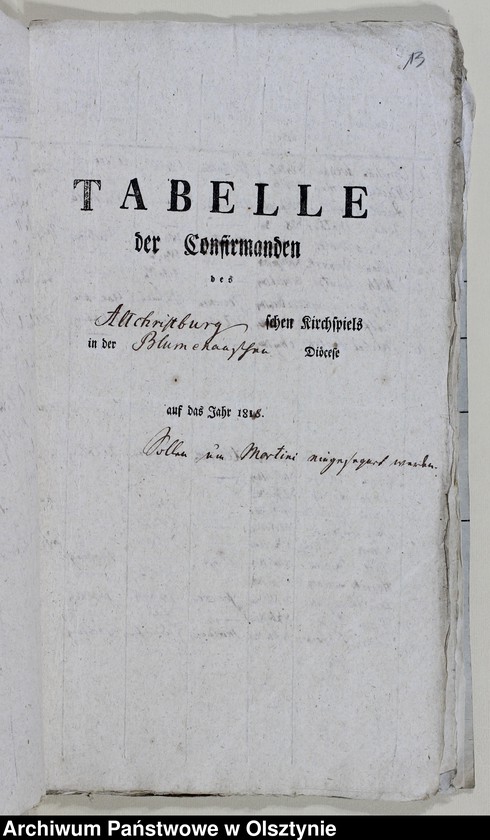 13
TABELLE
der Confirmanden
des
Altchristburg schen Kirchspiels
in der Blumenauschen Diöcese
auf das Jahr 1818.
Sollen um Martini eingesegnet werden.
Archiwum Państwowe w Olsztynie